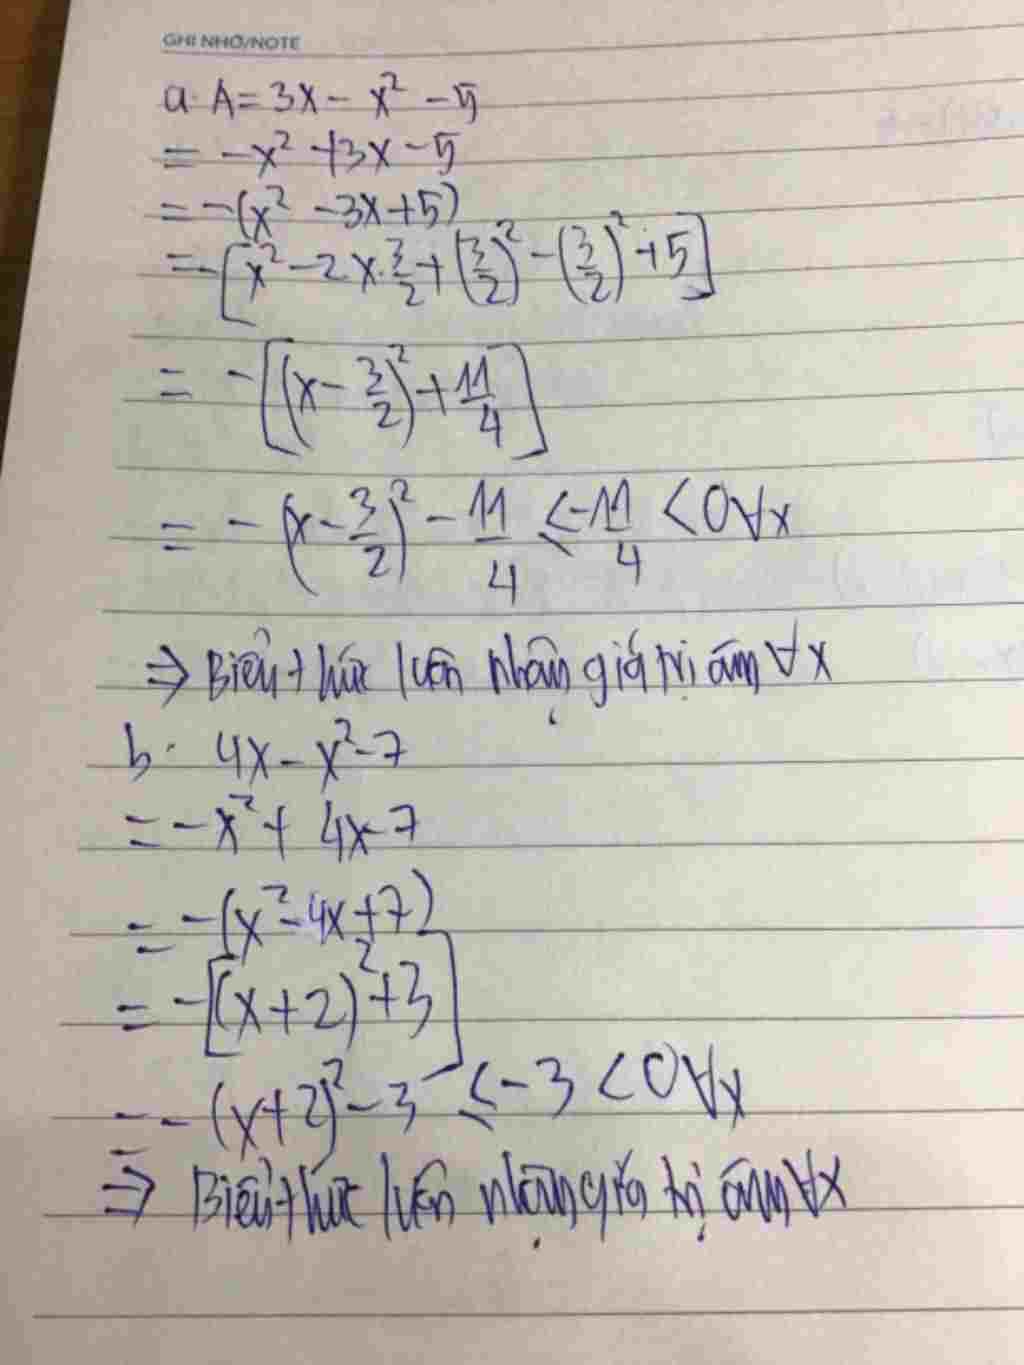 GHI NHỚ/NOTE
a. A = 3x - x² - 5
= -x² + 3x - 5
= -(x² - 3x + 5)
= -[x² - 2x.3/2 + (3/2)² - (3/2)² + 5]
= -[(x - 3/2)² + 11/4]
= -(x - 3/2)² - 11/4 ≤ -11/4 < 0 ∀x
⇒ Biểu thức luôn nhận giá trị âm ∀x
b. 4x - x² - 7
= -x² + 4x - 7
= -(x² - 4x + 7)
= -[(x + 2)² + 3]
= -(x + 2)² - 3 ≤ -3 < 0 ∀x
⇒ Biểu thức luôn nhận giá trị âm ∀x